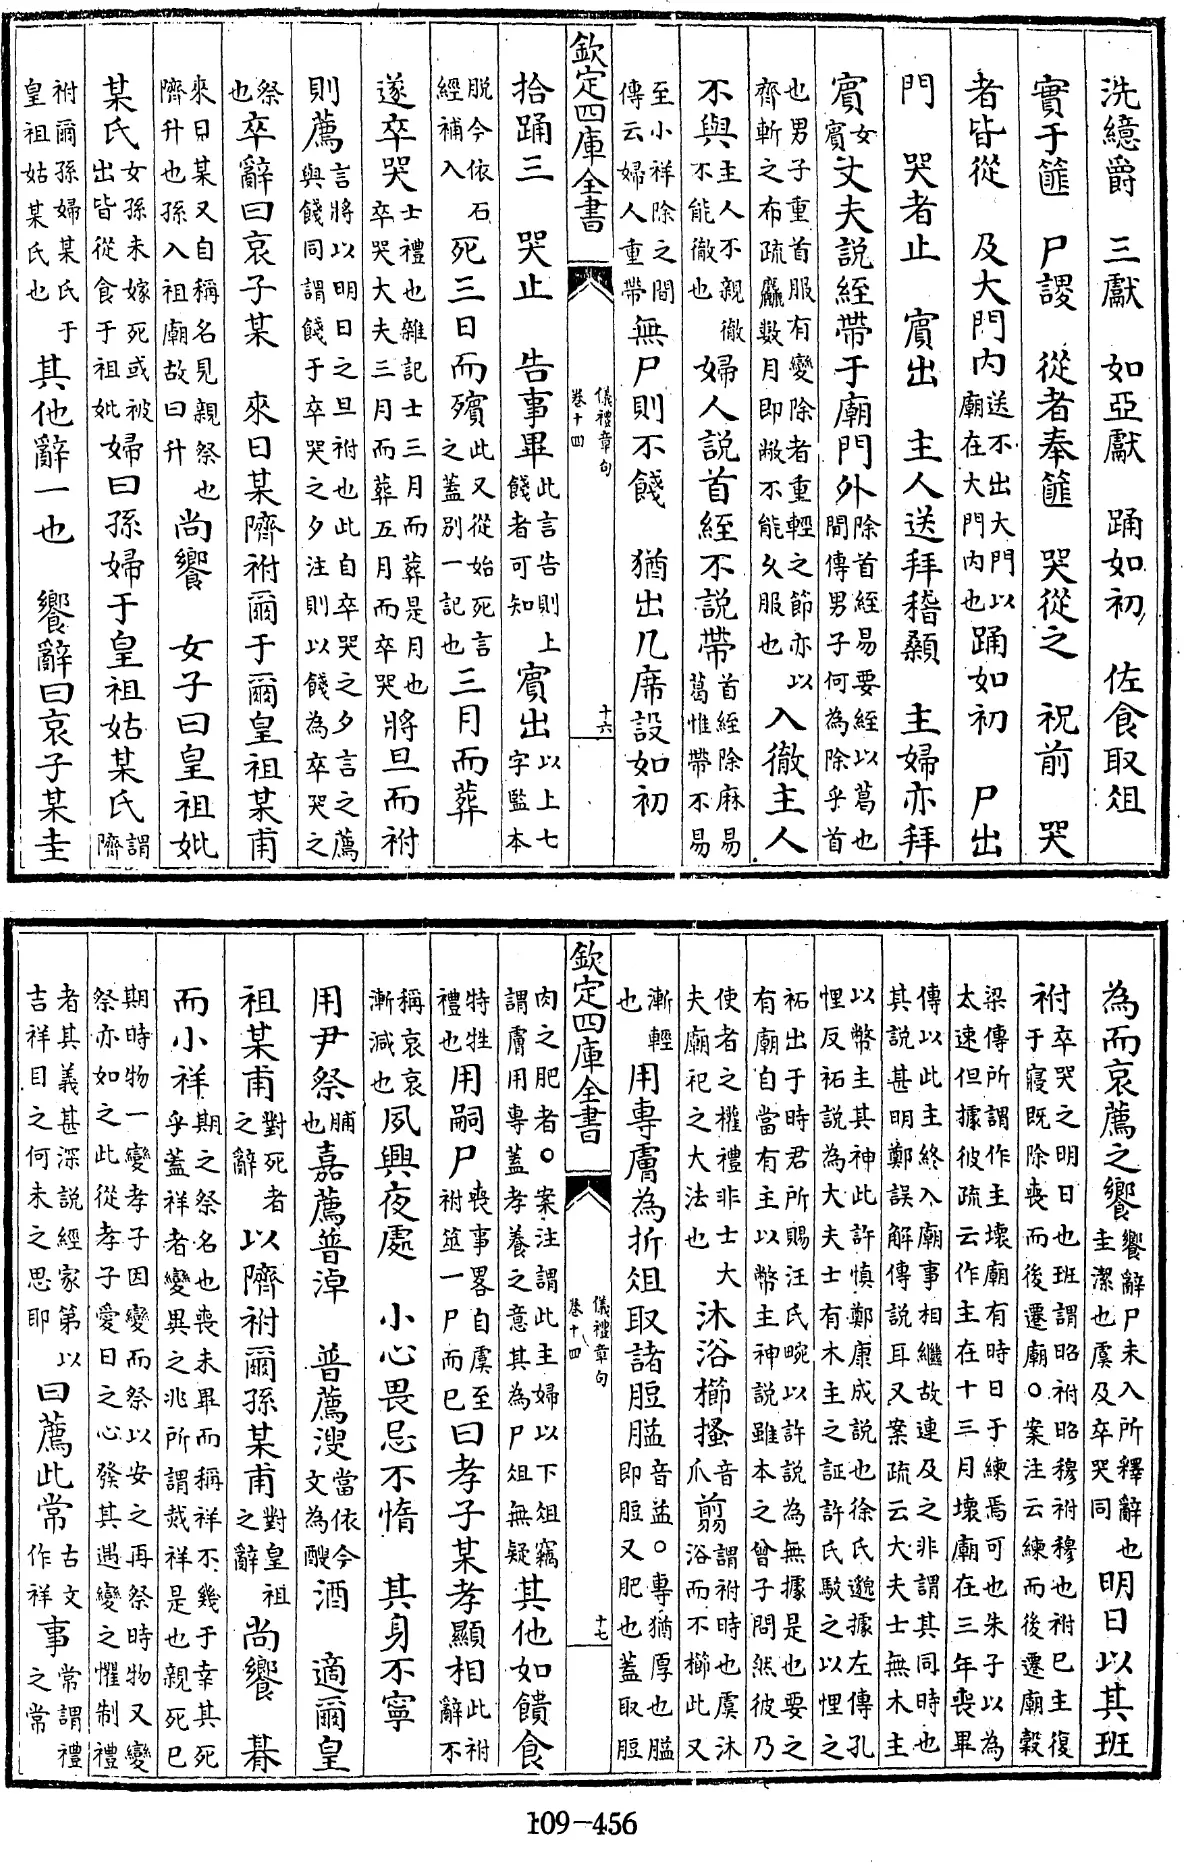 洗繶爵　三獻　如亞獻　踊如初　佐食取俎
實于篚　尸謖　從者奉篚　哭從之　祝前　哭
者皆從　及大門內送不出大門以廟在大門內也踊如初　尸出
門　哭者止　賓出　主人送拜稽顙　主婦亦拜
賓女賓丈夫説絰帶于廟門外除首絰易要絰以葛也間傳男子何為除乎首
也男子重首服有變除者重輕之節亦以齊斬之布疏麤數月即敝不能久服也入徹主人
不與主人不親徹不能徹也婦人説首絰不説帶首絰除麻易葛惟帶不易
至小祥除之間傳云婦人重帶無尸則不餞　猶出几席設如初
欽定四庫全書　儀禮章句卷十四　十六
拾踊三　哭止　告事畢此言告則上餞者可知賓出以上七字監本
脱今依石經補入死三日而殯此又從始死言之蓋別一記也三月而葬
遂卒哭士禮也雜記士三月而葬是月也卒哭大夫三月而葬五月而卒哭將旦而祔
則薦言將以明日之旦祔也此自卒哭之夕言之薦與餞同謂餞于卒哭之夕注則以餞為卒哭之
祭也卒辭曰哀子某　來日某隮祔爾于爾皇祖某甫
來日某又自稱名見親祭也隮升也孫入祖廟故曰升尚饗　女子曰皇祖妣
某氏女孫未嫁死或被出皆從食于祖妣婦曰孫婦于皇祖姑某氏謂隮
祔爾孫婦某氏于皇祖姑某氏也其他辭一也　饗辭曰哀子某圭
為而哀薦之饗饗辭尸未入所釋辭也圭潔也虞及卒哭同明日以其班
祔卒哭之明日也班謂昭祔昭穆祔穆也祔已主復于寢既除喪而後遷廟○案注云練而後遷廟穀
梁傳所謂作主壞廟有時日于練焉可也朱子以為太速但據彼疏云作主在十三月壞廟在三年喪畢
傳以此主終入廟事相繼故連及之非謂其同時也其説甚明鄭誤解傳説耳又案疏云大夫士無木主
以幣主其神此許慎鄭康成説也徐氏邈據左傳孔悝反祏説為大夫士有木主之証許氏駁之以悝之
祏出于時君所賜汪氏畹以許説為無據是也要之有廟自當有主以幣主神説雖本之曾子問然彼乃
使者之權禮非士大夫廟祀之大法也沐浴櫛搔音爪翦謂祔時也虞沐浴而不櫛此又
漸輕也用專膚為折俎取諸脰膉音益○專猶厚也膉即脰又肥也蓋取脰
欽定四庫全書　儀禮章句卷十四　十七
肉之肥者○案注謂此主婦以下俎竊謂膚用專蓋孝養之意其為尸俎無疑其他如饋食
特牲禮也用嗣尸喪事畧自虞至祔筮一尸而已曰孝子某孝顯相此祔辭不
稱哀哀漸減也夙興夜處　小心畏忌不惰　其身不寧
用尹祭脯也嘉薦普淖　普薦溲當依今文為醙酒　適爾皇
祖某甫對死者之辭以隮祔爾孫某甫對皇祖之辭尚饗　朞
而小祥期之祭名也喪未畢而稱祥不幾于幸其死乎蓋祥者變異之兆所謂烖祥是也親死已
期時物一變孝子因變而祭以安之再祭時物又變祭亦如之此從孝子愛日之心發其遇變之懼制禮
者其義甚深説經家第以吉祥目之何未之思耶曰薦此常古文作祥事常謂禮之常
109-456